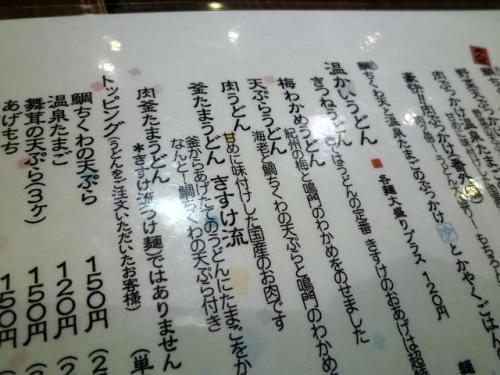 野菜天ぷら
肉ぶっかけ
豪快!!肉ぶっかけ(番外
鯛ちくわ天と温泉たまごのぶっかけ 冷 とかやくごはん
■ 各麺大盛りプラス 120円
温かいうどん
きつねうどん うどんの定番 きすけのおあげは
梅わかめうどん 紀州の梅と鳴門のわかめをのせました
天ぷらうどん 海老と鯛ちくわの天ぷらと鳴門のわかめ
肉うどん 甘めに味付けした国産のお肉です
釜たまうどん きすけ流
釜からあげたてのうどんにたまごをか
なんと!鯛ちくわの天ぷら付き
肉釜たまうどん
*きすけ流つけ麺)ではありません (単
トッピング(うどんをご注文いただいたお客様)
鯛ちくわの天ぷら 150円 (2
温泉たまご 120円 (
舞茸の天ぷら(3ヶ) 150円 (2
あげもち 150円